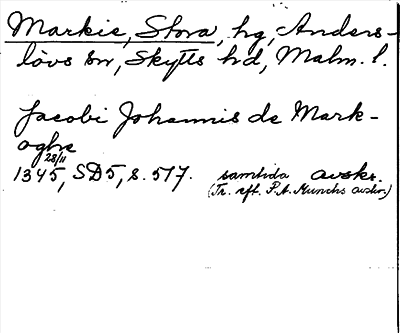 Markie, Stora, hg, Anders-
lövs sn, Skytts hd, Malm. l.
Jacobi Johannis de Mark-
oghe
28/11
1345, SD5, s. 517. samtida avskr.
(Tr. eft. P.A. Munchs avskr.)